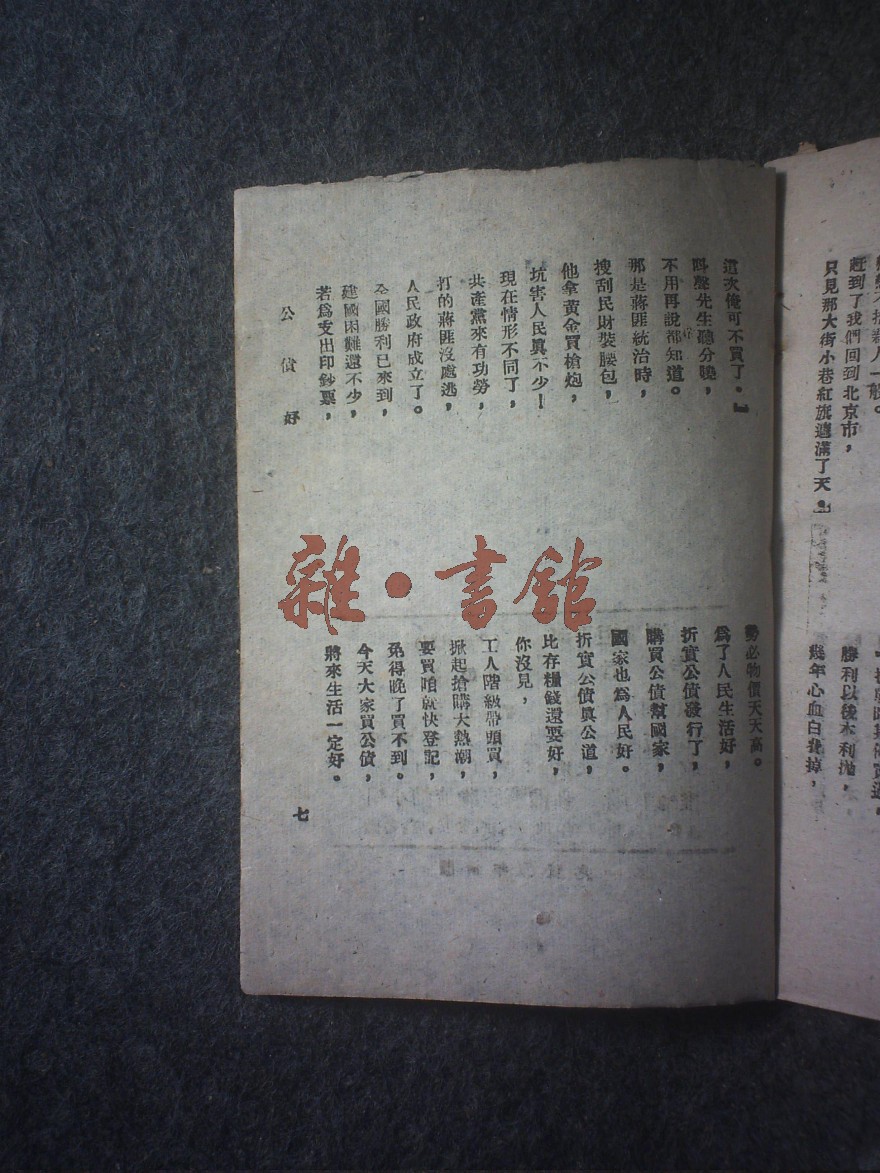 趕到了我們回到北京市，
只見那大街小巷紅旗遮滿了天。」
勝利以後本利拋，
幾年心血白費掉，
這次俺可不買了。』
呌聲先生聽分曉，
不用再說都知道。
那是蔣匪統治時，
搜刮民財裝腰包，
他拿黃金買槍炮，
坑害人民眞不少！
現在情形不同了，
共產黨來有功勞，
打的蔣匪沒處逃，
人民政府成立了。
全國勝利已來到，
建國困難還不少，
若爲支出印鈔票，
勢必物價天天高。
爲了人民生活好，
折實公債發行了，
購買公債幫國家，
國家也爲人民好。
折實公債眞公道，
比存糧錢還要好，
你沒見，
工人階級帶頭買，
掀起搶購大熱潮，
要買咱就快登記，
免得晚了買不到。
今天大家買公債，
將來生活一定好。
公債好
七
雜·書館